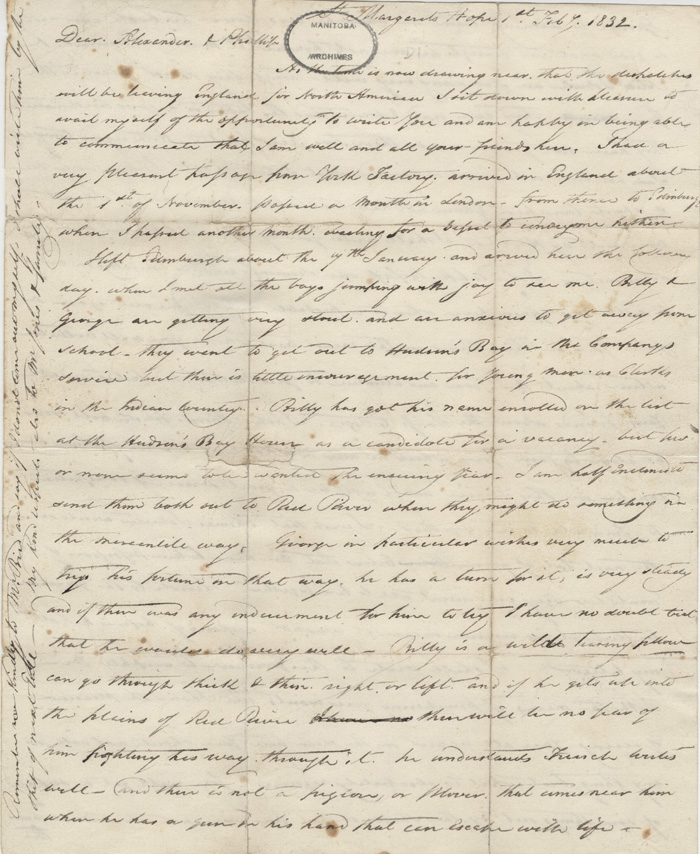 St. Margarets Hope 1st Feby. 1832.
MANITOBA
ARCHIVES
Dear. Alexander. &
As the time is now drawing near that the dispatches
will be leaving England for North America I sit down with pleasure to
avail myself of the opportunity to write You and am happy in being able
to communicate that I am well and all your friends here. I had a
very pleasant passage from York Factory. arrived in England about
the 1st of November. passed a month in London - from thence to Edinburg
when I passed another month. waiting for a Vessel to convey me hither.
I left Edinburgh about the 9th January and arrived here the following
day. when I met all the boys jumping with joy to see me. Billy &
George are getting very stout. and are anxious to get away from
School - they want to get out to Hudson's Bay in the Company's
Service but there is little encouragement for Young men as Clerks
in the Indian Country. Billy has got his name enrolled on the list
at the Hudson's Bay House as a candidate for a vacancy. but few
or none seems to be wanted the ensuing Year - I am half inclined to
send them both out to Red River when they might do something in
the mercantile way. George in particular wishes very much to
try his fortune in that way. he has a turn for it, is very steady
and if there was any inducement for him to try I have no doubt but
that he would do very well - Billy is a wild tearing fellow
can go through thick & thin. right. or left. and if he gets up into
the plains of Red River there will be no fear of
him fighting his way through it. he understands French writes
well - and there is not a pigeon, or Plover. that comes near him
when he has a gun in his hand that can escape with life -
Remember me kindly to Mr Bird and say